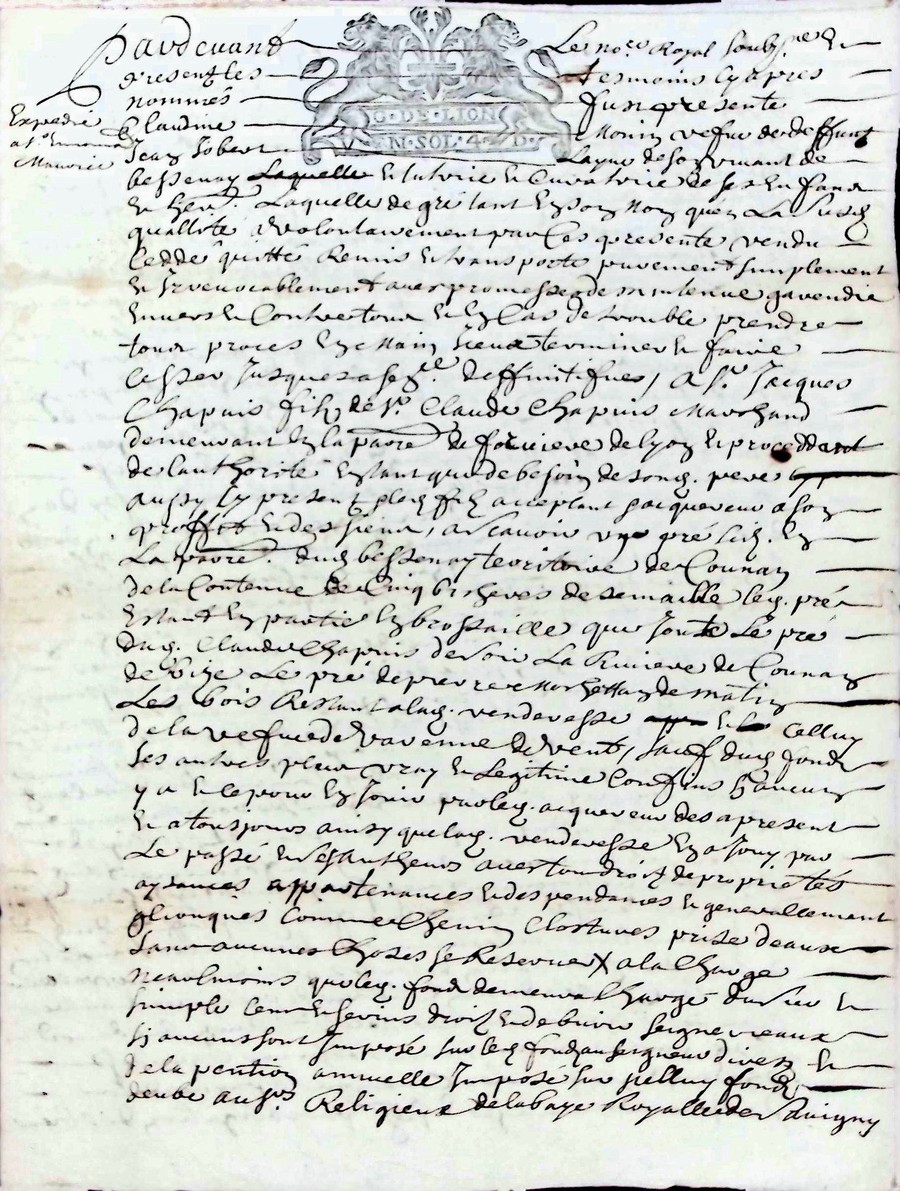 Pardevant Le no.re Royal soubz.né Et
presents les tesmoins cy apres
nommés fus presente
Claudine Monin vefue de deffunt
Expedié
a s.r
Maurice
Jean Jobert Layne de son vivant de
bessenay Laquelle Et tutrice Et Curatrice de ses Enfans
Et her.rs Laquelle de gré tant En son Nom qu'en La susd.
quallité a volontairement par Ces presente vendu
Ceddé quitté Remis Et transporté purement simplement
Et Irrevocablement avec promesse de mintenue garendie
Envers Et Contre tous Et En Cas de trouble prendre
tous proces En Main Iceux terminer Et faire
Cesser Jusques a se.ce deffinitifues, a S.r Jacques
Chapuis filz de S.r Claude Chapuis Marchand
demeurant En la parre. de forviere de lyon Et proceddant
de lauthorité Entant que de besoin de sond. pere
aussy Cy present led. filz acceptant Et acquereur a son
proffit Et des siens, a scavoir un pré scis. En
La parre. dud bessenay territoire de Counan
de la Contenue de Cinq bicheres de semaille led. pré
Estant En partie En brossaille que Joute Le pré
dud. Claude Chapuis de soir La Riviere de Counan
de bize Le pré de pierre de matin
Les bois Restant alad. venderesse Et Celluy
de la vefue de varenne de vent, sauf dud fond
ses autres plus vray Et Legitime Confins sy aucuns
y a Et ce pour En Jouir par led. acquereur des a present
Et a tousjours ainsy que lad. venderesse En a Jouy par
Le passé Et ses autheurs avec tous droits de proprietés
aysances appartenances Et despendances Et generallement
quelconques Comme Chemin Clostures prise deaux
sans aucunes Choses se Reserver X a la Charge
neaulmoins que led. fond demeura Chargé du seu Et
simple Cens Et servis droits Et debvoir seigneuriaux
sj aucuns sont Imposé sur led fond au seigneur divers Et
de la pention annuelle Imposé sur Icelluy fond
deube aus.rs Religieux de labaye Royalle de Savigny
G. DE LION